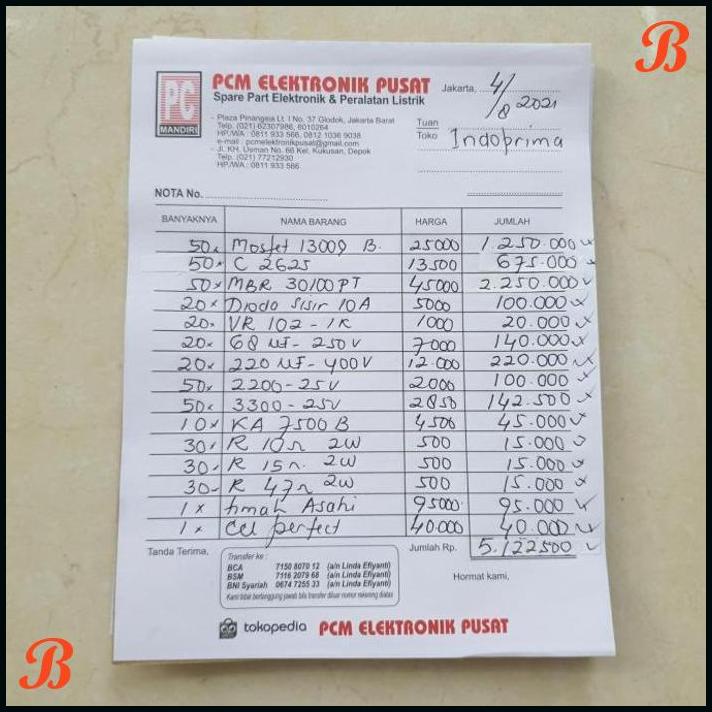 B
PC
MANDIRI
PCM ELEKTRONIK PUSAT
Spare Part Elektronik & Peralatan Listrik
- Plaza Pinangsia Lt. I No. 37 Glodok, Jakarta Barat
Telp. (021) 62307986, 6010264
HP/WA : 0811 933 566, 0812 1036 9038
e-mail : pcmelektronikpusat@gmail.com
- Jl. KH. Usman No. 66 Kel. Kukusan, Depok
Telp. (021) 77212930
HP/WA : 0811 933 566
Jakarta, 4/8 2021
Tuan
Toko Indoprima
NOTA No.
BANYAKNYA NAMA BARANG HARGA JUMLAH
50x Mosfet 13009 B. 25000 1.250.000
50x C 2625 13500 675.000
50x MBR 30100 PT 45000 2.250.000
20x Diodo Sisir 10A 5000 100.000
20x VR 102 - 1K 1000 20.000
20x 68 uF - 250 V 7000 140.000
20x 220 uF - 400V 12.000 220.000
50x 2200 - 25V 2000 100.000
50x 3300 - 25V 2850 142.500
10x KA 7500 B 4500 45.000
30x R 10Ω 2W 500 15.000
30x R 15Ω 2W 500 15.000
30- R 47Ω 2W 500 15.000
1x timah Asahi 95000 95.000
1x perfect 40.000 40.000
Jumlah Rp. 5.122500
Tanda Terima,
Transfer ke :
BCA 7150 8070 12 (a/n Linda Efiyanti)
BSM 7116 2079 68 (a/n Linda Efiyanti)
BNI Syariah 0674 7255 33 (a/n Linda Efiyanti)
Kami tidak bertanggung jawab bila transfer diluar nomor rekening diatas
Hormat kami,
tokopedia PCM ELEKTRONIK PUSAT
B